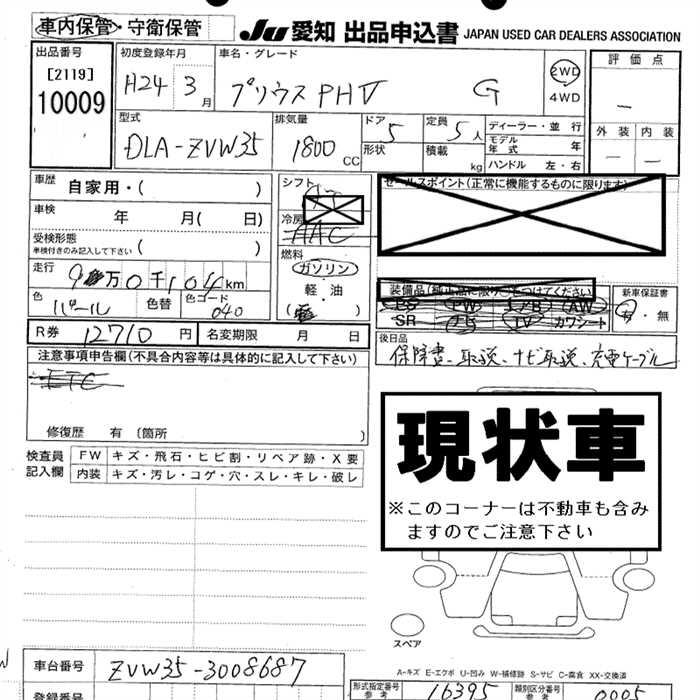 車内保管・守衛保管
JU 愛知 出品申込書 JAPAN USED CAR DEALERS ASSOCIATION
出品番号
[2119]
10009
初度登録年月
H24 3月
車名・グレード
プリウスPHV G
2WD
4WD
評価点
外装 内装
型式
DLA-ZVW35
排気量
1800 CC
ドア 5
形状
定員 5人
積載 kg
ディーラー・並行
モデル年式 年
ハンドル 左・右
車歴 自家用・( )
シフト
セールスポイント(正常に機能するものに限ります)
車検 年 月( 日)
冷房 AAC
受検形態
車検付きのみ記入して下さい ( )
燃料
ガソリン
軽・油
走行 9万0千104km
色 パール 色替 色コード 040
装備品(純正品に限り○をつけてください)
PS PW エアB AW
SR TV カワシート
新車保証書
有・無
R券 12710円 名変期限 月 日
後日品
保障書、取説、ナビ取説、充電ケーブル
注意事項申告欄(不具合内容等は具体的に記入して下さい)
ETC
修復歴 有〔箇所 〕
現状車
※このコーナーは不動車も含みますのでご注意下さい
検査員記入欄
FW キズ・飛石・ヒビ割・リペア跡・X要
内装 キズ・汚レ・コゲ・穴・スレ・キレ・破レ
スペア
A-キズ E-エクボ U-凹み W-補修跡 S-サビ C-腐食 XX-交換済
車台番号 ZVW35-3008687
形式指定番号 参考 16395
類別区分番号 参考 0005
登録番号